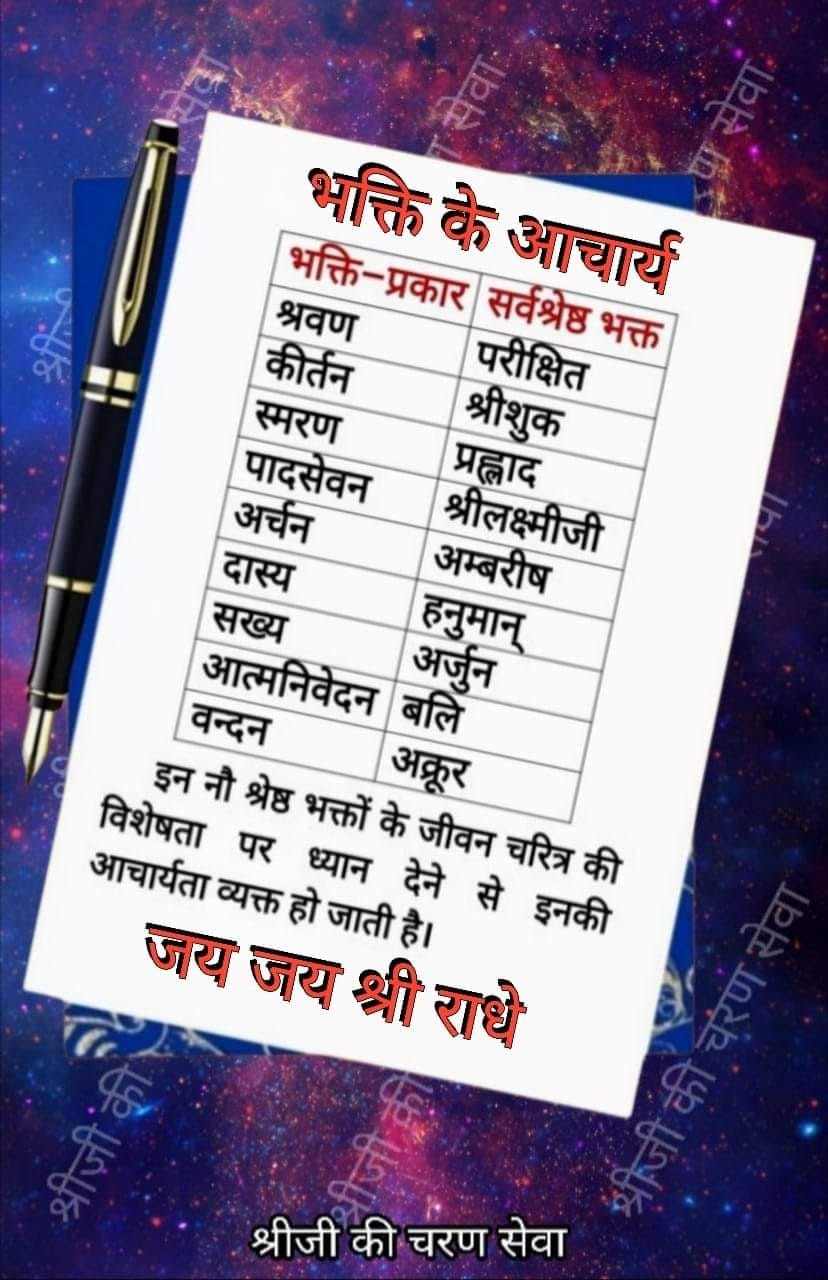 भक्ति के आचार्य
भक्ति-प्रकार सर्वश्रेष्ठ भक्त
श्रवण परीक्षित
कीर्तन श्रीशुक
स्मरण प्रह्लाद
पादसेवन श्रीलक्ष्मीजी
अर्चन अम्बरीष
दास्य हनुमान्
सख्य अर्जुन
आत्मनिवेदन बलि
वन्दन अक्रूर
इन नौ श्रेष्ठ भक्तों के जीवन चरित्र की
विशेषता पर ध्यान देने से इनकी
आचार्यता व्यक्त हो जाती है।
जय जय श्री राधे
श्रीजी की चरण सेवा
श्रीजी की
श्रीजी की
श्रीजी की चरण सेवा